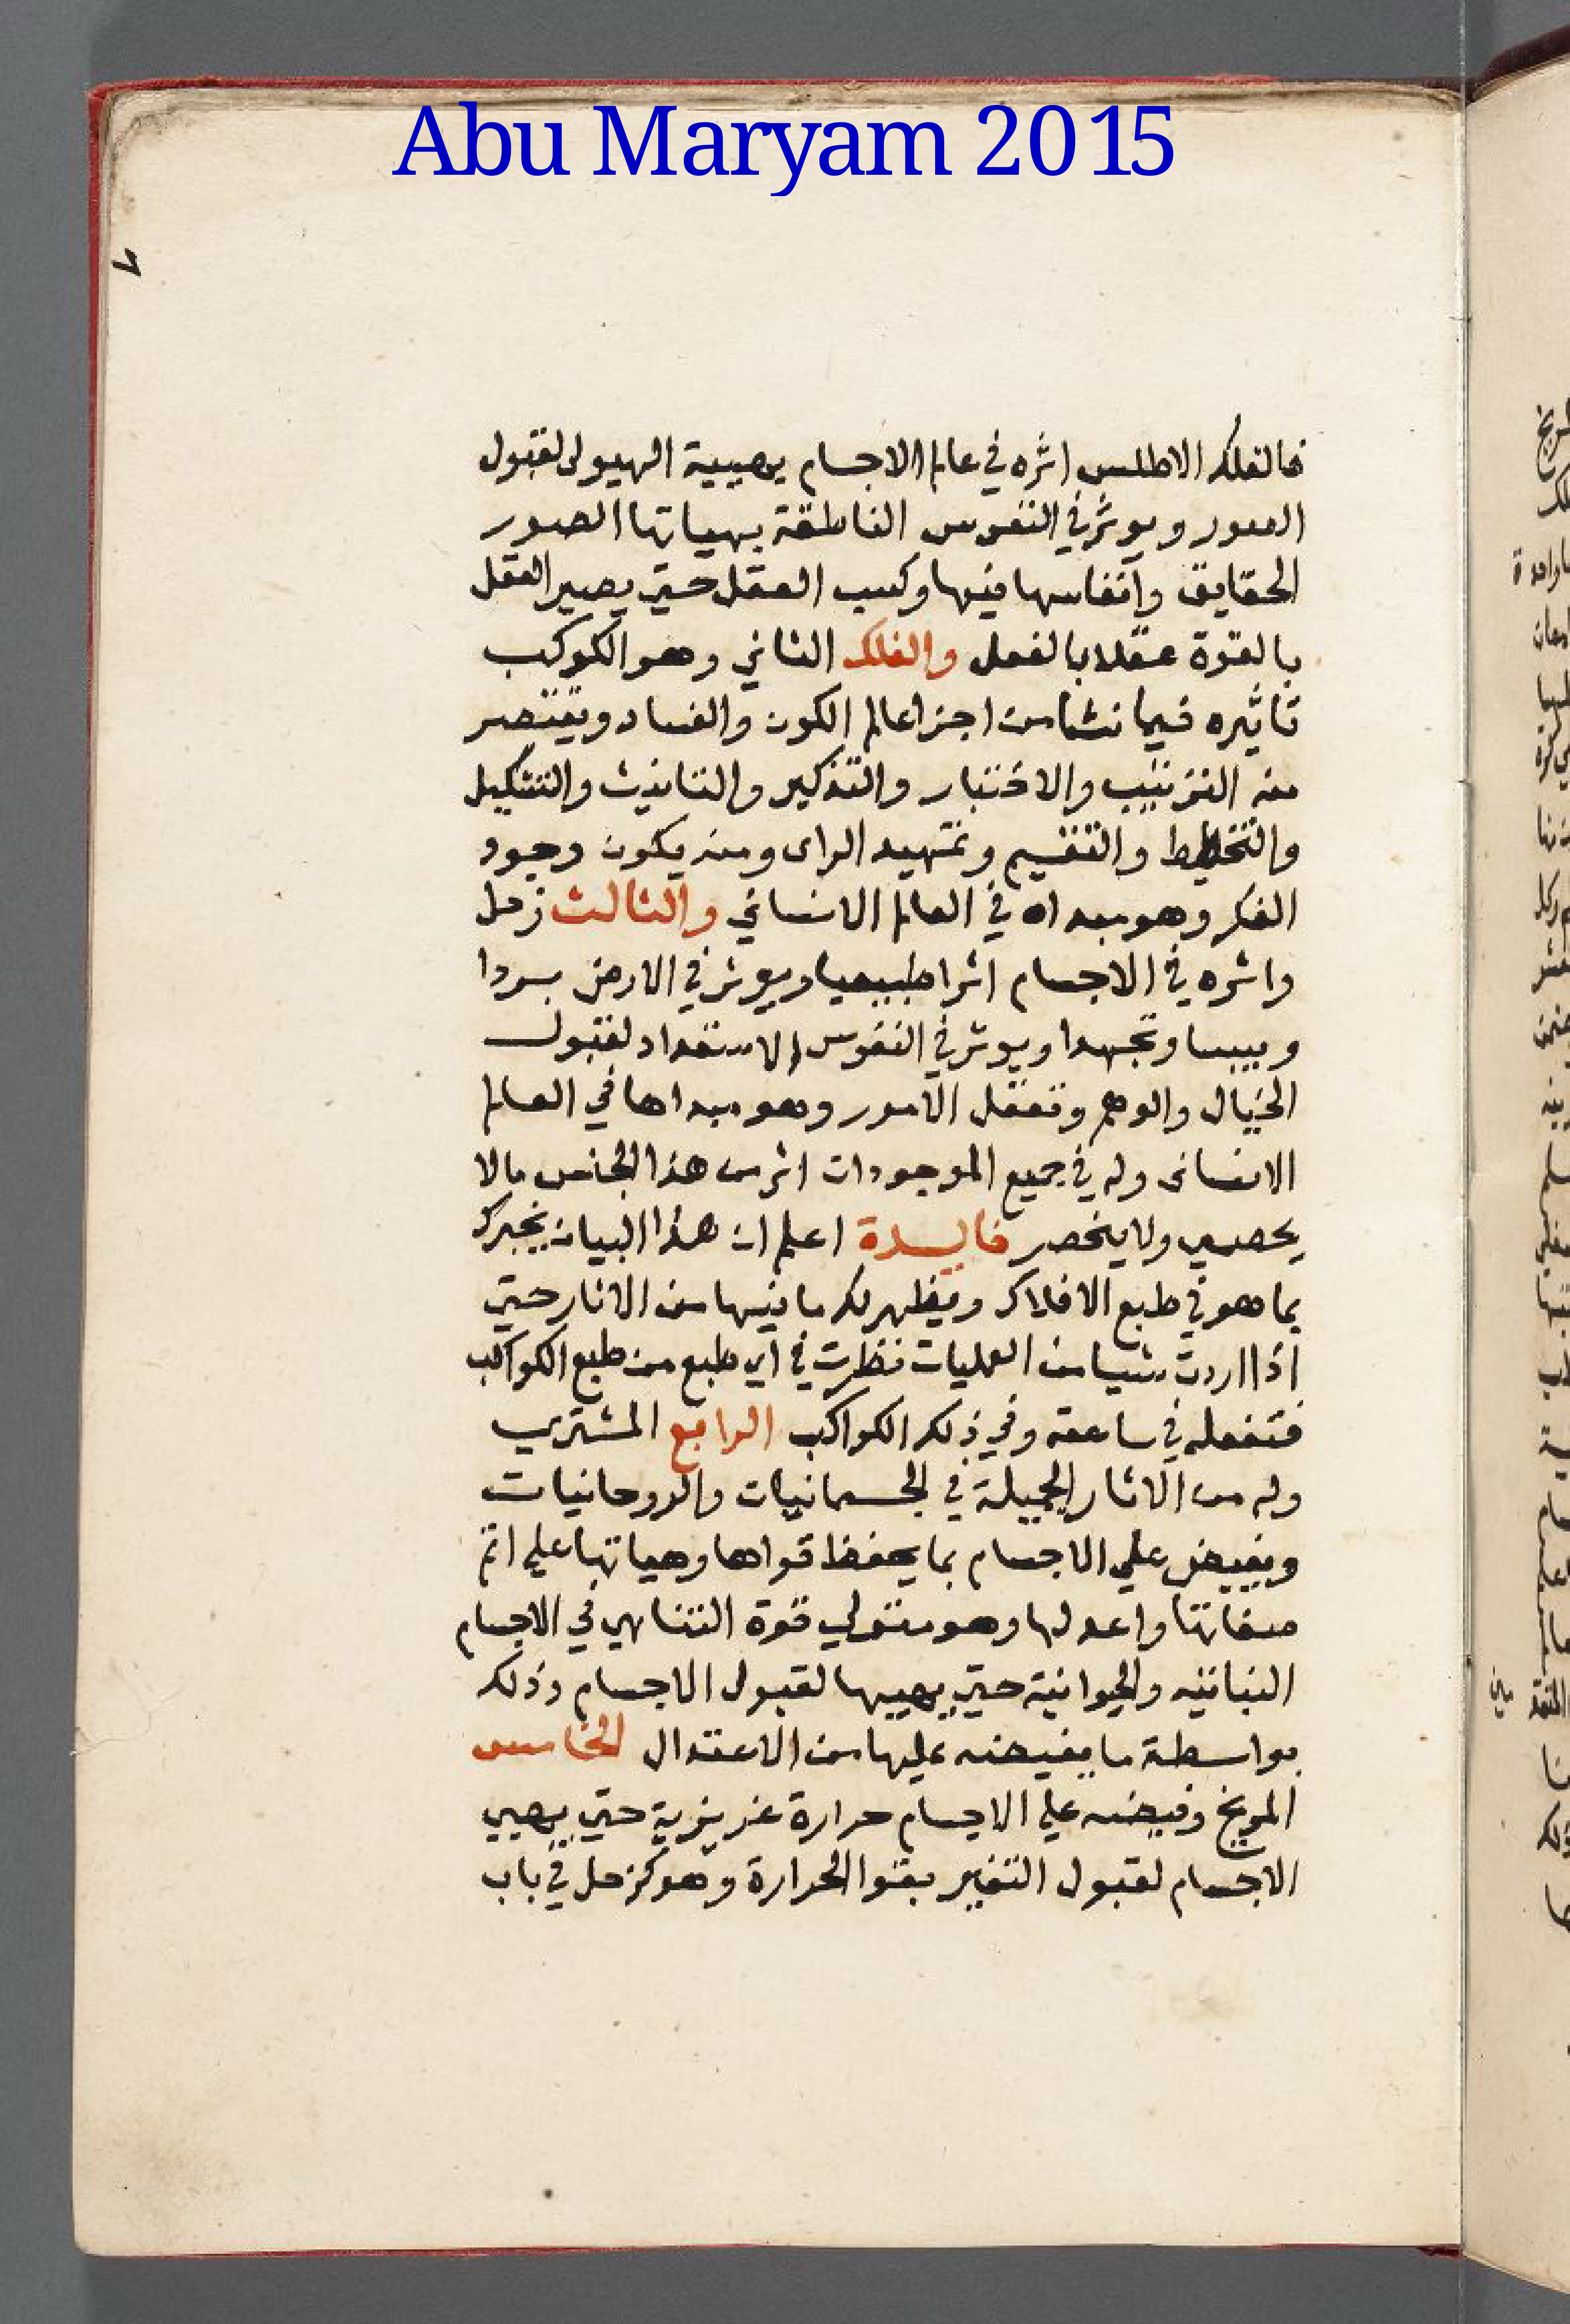 Abu Maryam 2015
٦
فالفلك الاطلس اثره في عالم الاجسام يهيية الهيولى لقبول
الصور ويوثر في النفوس الناطقة بهياتها الصور
الحقايق وانفاسها فيها وكسب العقل حتي يصير العقل
بالقوة عقلا بالفعل والفلك الثاني وهو الكوكب
تاثيره فيما نشا من اجزا عالم الكون والفساد ويقتصر
منه الترتيب والاختبار والتذكير والتانيث والتشكيل
والتخطيط والتقسيم وتمهيد الراى ومنه يكون وجود
الفكر وهو مبداه في العالم الانساني والثالث زحل
واثره في الاجسام اثرا طبيعيا ويوثر في الارض بردا
ويبسا وتجهدا ويوثر في النفوس الاستعداد لقبول
الخيال والوهم وتعقل الامور وهو مبداها في العالم
الانسانى وله في جميع الموجودات اثر من هذا الجنس مالا
يحصي ولا ينحصر فايدة اعلم ان هذا البيان يخبرك
بما هو في طبع الافلاك ويظهر لك ما فيها من الاثار حتي
اذا اردت شيا من العمليات نظرت في اي طبع من طبع الكواكب
فتفعله في ساعته وفي ذلك الكواكب الرابع المشتري
وله من الاثار الجميلة في الجسمانيات والروحانيات
ويفيض علي الاجسام بما يحفظ قواها وهياتها علي اتم
صفاتها واعدلها وهو متولي قوة التناهي في الاجسام
النباتيه والحيوانية حتي يهييها لقبول الاجسام وذلك
بواسطة ما يفيضه عليها من الاعتدال الخامس
المريخ وفيضه علي الاجسام حرارة غريزية حتي يهيي
الاجسام لقبول التغير بقوا الحرارة وهو كزحل في باب